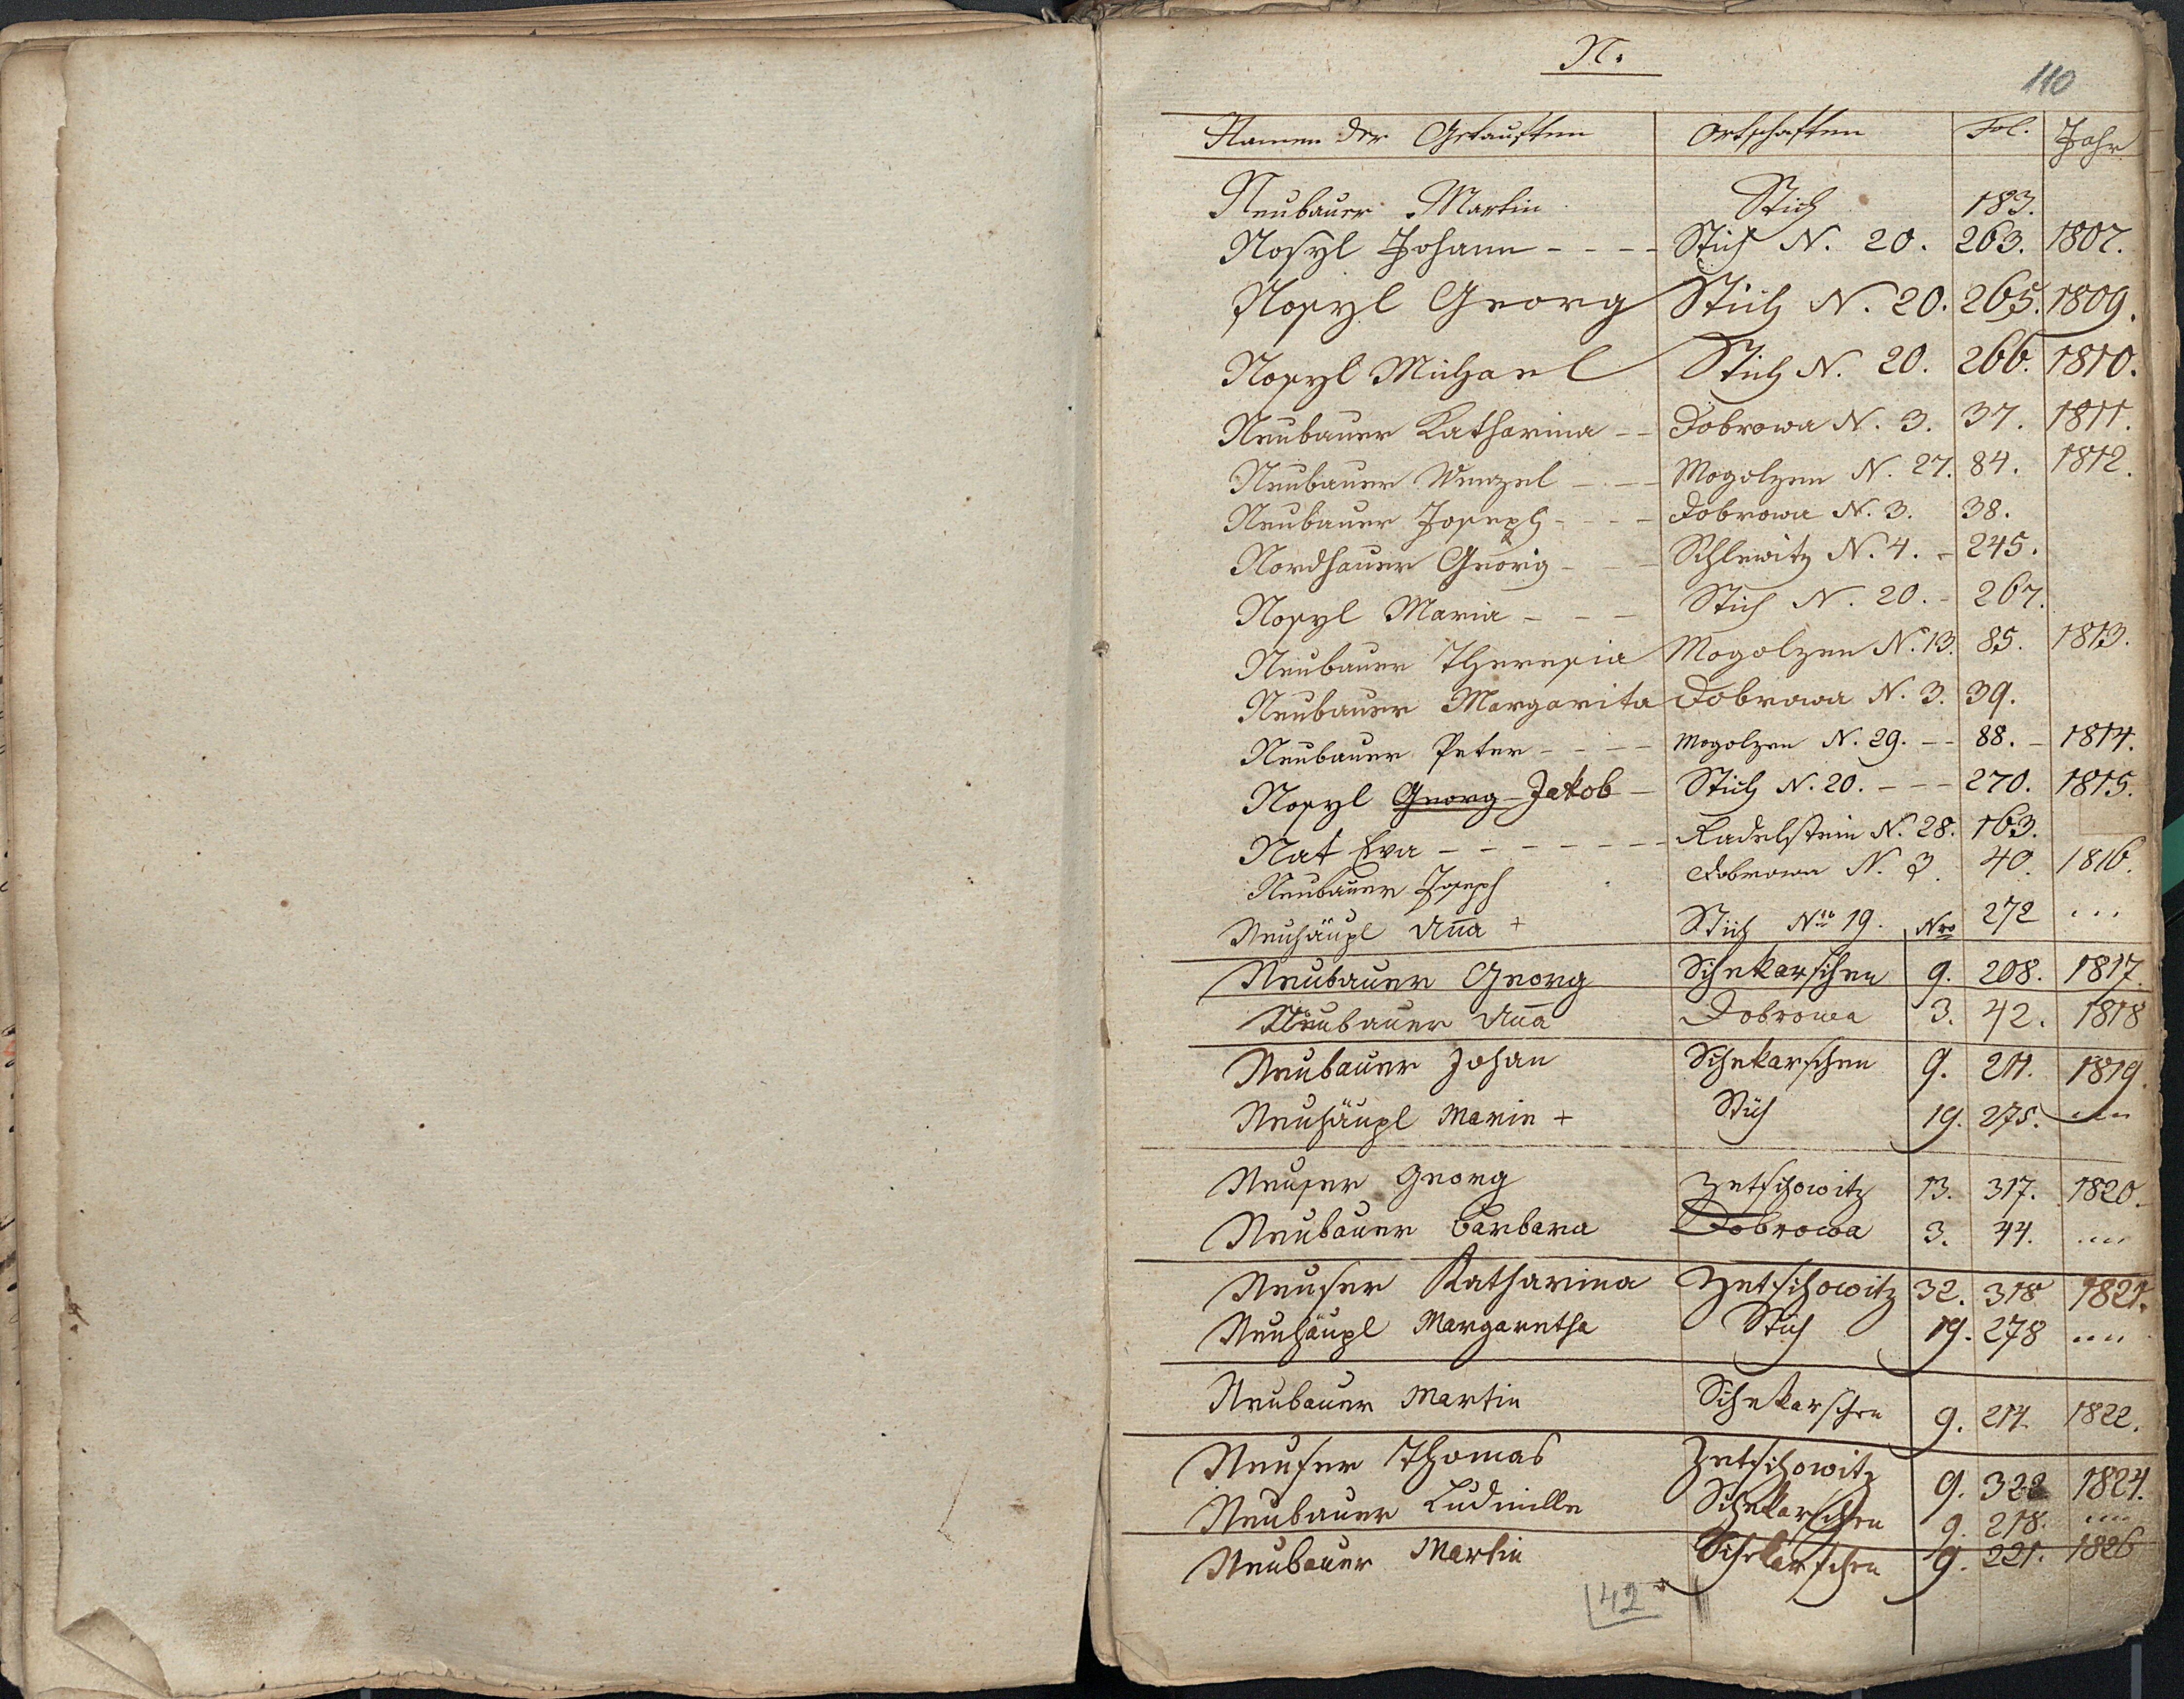 N.
110
Namen der Getauften Ortschaften Fol. Jahr
Neubauer Martin Stich 183.
Nosyl Johann - - - - Stich N. 20. 263. 1807.
Nosyl Georg Stich N. 20. 265. 1809.
Nosyl Michael Stich N. 20. 266. 1810.
Neubauer Katharina - - Dobrowa N. 3. 37. 1811.
Neubauer Wenzel - - - Mogolzen N. 27. 84. 1812.
Neubauer Joseph - - - - Dobrowa N. 3. 38.
Nordhauer Georg - - - Schlewitz N. 4. - 245.
Nosyl Maria - - - Stich N. 20. - 267.
Neubauer Theresia Mogolzen N. 13. 85. 1813.
Neubauer Margarita Dobrowa N. 3. 39.
Neubauer Peter - - - - Mogolzen N. 29. - - 88. - 1814.
Nosyl Georg Jakob - Stich N. 20. - - - 270. 1815.
Nat Eva - - - - - - - Radelstein N. 28. 163.
Neubauer Joseph Dobrowa N. 3. 40. 1816.
Neuhäupl Aña + Stich Nro 19. Nro 272 ...
Neubauer Georg Schekarschen 9. 208. 1817.
Neubauer Aña Dobrowa 3. 42. 1818
Neubauer Johan Schekarschen 9. 211. 1819.
Neuhäupl Marie + Stich 19. 275. ....
Neuser Georg Zetschowitz 13. 317. 1820.
Neubauer Barbara Dobrowa 3. 44. ....
Neuser Katharina Zetschowitz 32. 318 1821.
Neuhäupl Margaretha Stich 19. 278 ....
Neubauer Martin Schekarschen 9. 214. 1822.
Neuser Thomas Zetschowitz 9. 322 1824.
Neubauer Ludmille Schekarschen 9. 218. ....
Neubauer Martin Schekarschen 9. 221. 1826
42